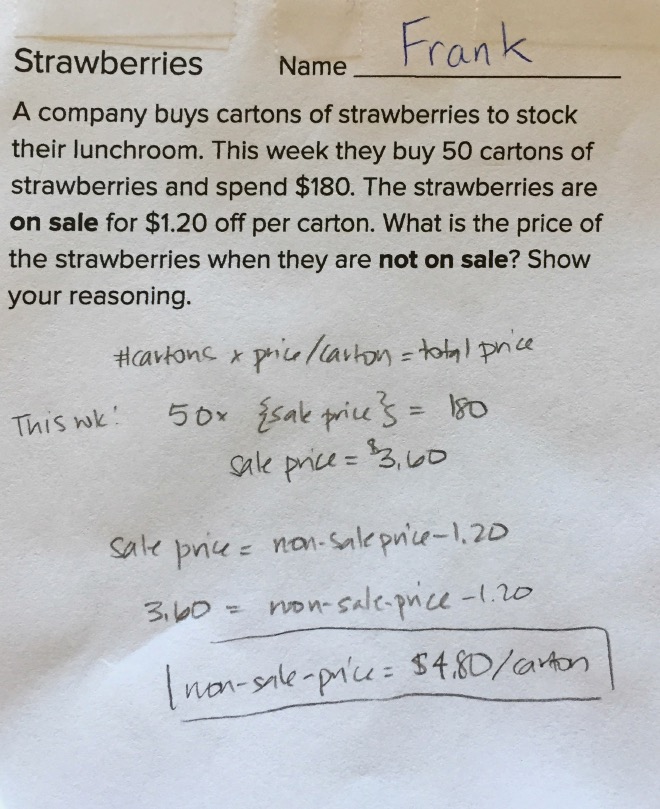 Strawberries Name Frank
A company buys cartons of strawberries to stock
their lunchroom. This week they buy 50 cartons of
strawberries and spend $180. The strawberries are
on sale for $1.20 off per carton. What is the price of
the strawberries when they are not on sale? Show
your reasoning.
#cartons x price/carton = total price
This wk: 50x {sale price} = 180
sale price = $3.60
sale price = non-sale price - 1.20
3.60 = non-sale-price - 1.20
non-sale-price = $4.80/carton